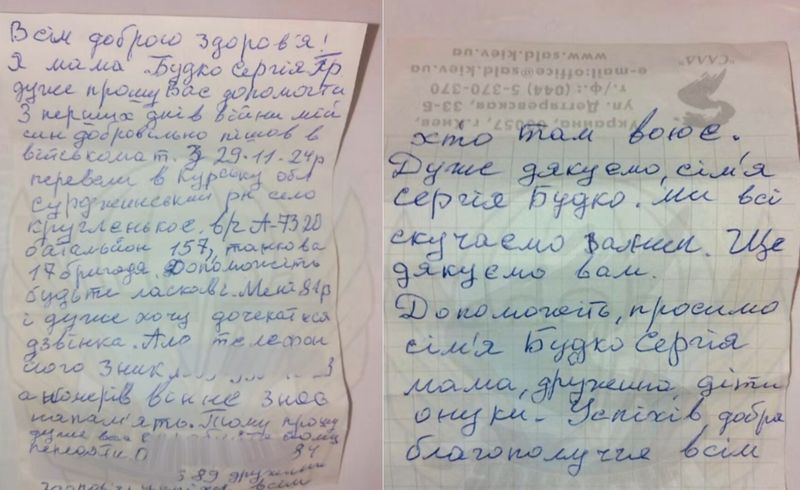 Всім доброго здоров'я!
Я мама Будко Сергія Пр
дуже прошу Вас допомогти
З перших днів війни мій
син добровільно пішов в
військомат. З 29.11.24р
перевели в Курську обл
Суджинський рн село
Кругленькое. в/ч А-7320
батальйон 157, танкова
17 бригада. Допоможіть
будьте ласкаві. Мені 81р
і дуже хочу дочекатися
дзвінка. Але телефон
його зник З
а номерів він не знає
напам'ять. Тому прошу
дуже вас
89 дружини
всім
"САЛД"
www.sald.kiev.ua
e-mail:office@sald.kiev.ua
т./ф.: (044) 5-370-370
ул. Дегтяревская, 33-Б
Украина, 03057, г.Киев,
хто там воює.
Дуже дякуємо, сім'я
Сергія Будко. Ми всі
скучаємо за ним. Ще
дякуємо вам.
Допоможіть, просимо
сім'я Будко Сергія
мама, дружина, діти
онуки - Успіхів добра
благополуччя всім